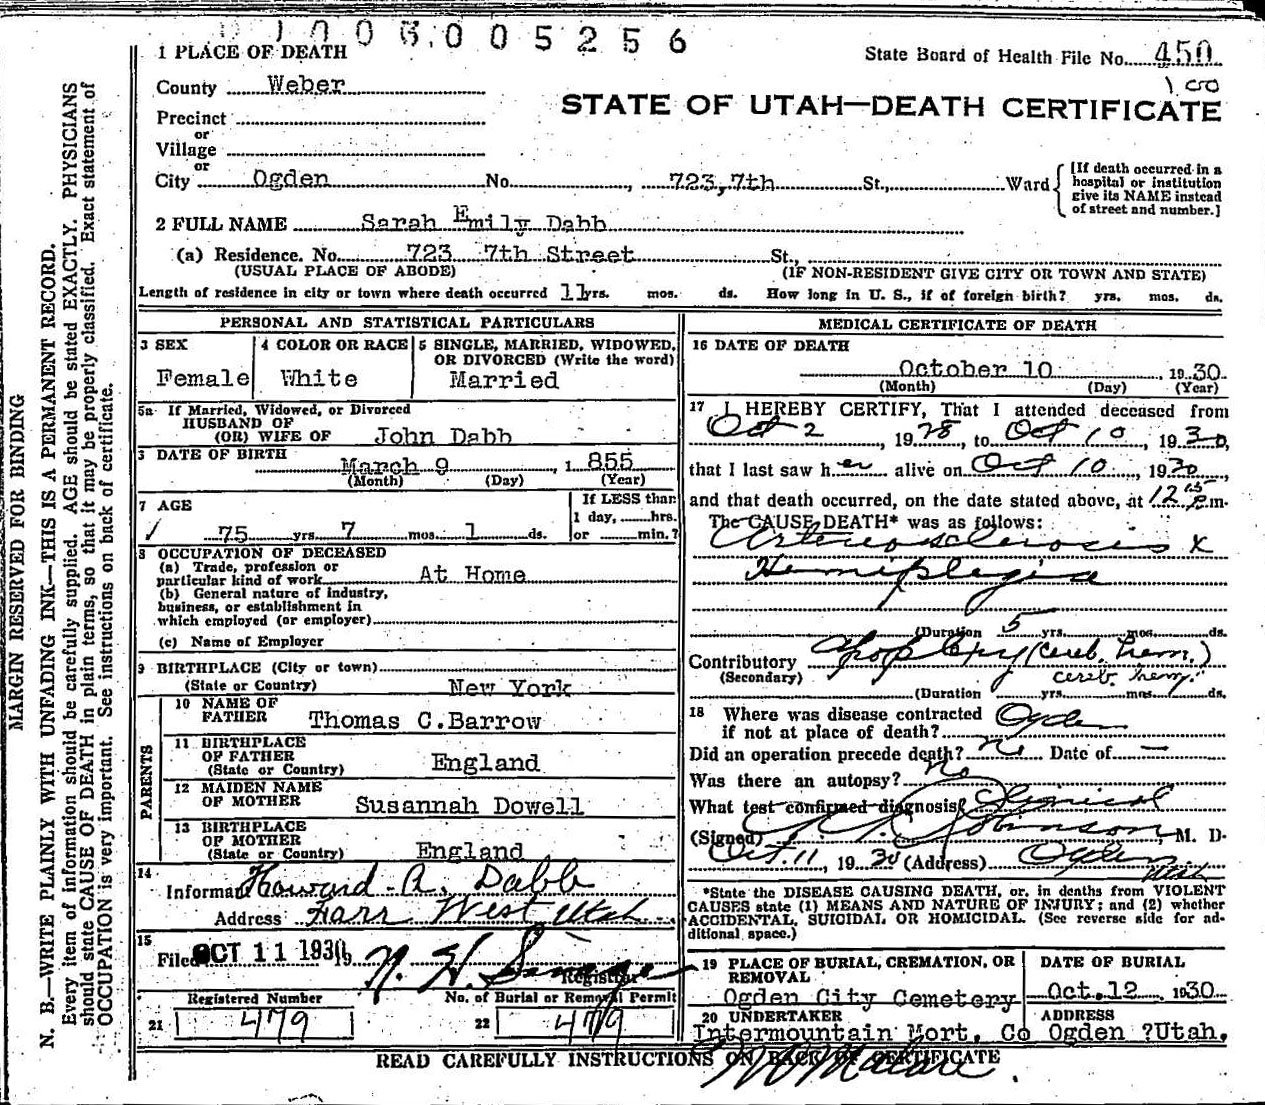 1003005256
1 PLACE OF DEATH
State Board of Health File No. 450
County Weber
100
STATE OF UTAH—DEATH CERTIFICATE
Precinct
or
Village
or
City Ogden No. , 723,7th St., Ward
[If death occurred in a hospital or institution give its NAME instead of street and number.]
2 FULL NAME Sarah Emily Dabb
(a) Residence. No. 723 7th Street St.,
(USUAL PLACE OF ABODE) (IF NON-RESIDENT GIVE CITY OR TOWN AND STATE)
Length of residence in city or town where death occurred 11yrs. mos. ds. How long in U. S., if of foreign birth? yrs. mos. ds.
PERSONAL AND STATISTICAL PARTICULARS
3 SEX
Female
4 COLOR OR RACE
White
5 SINGLE, MARRIED, WIDOWED,
OR DIVORCED (Write the word)
Married
5a If Married, Widowed, or Divorced
HUSBAND OF
(OR) WIFE OF John Dabb
DATE OF BIRTH
March 9 , 1 855
(Month) (Day) (Year)
7 AGE
75 yrs. 7 mos. 1 ds.
If LESS than
1 day, hrs.
or min.?
8 OCCUPATION OF DECEASED
(a) Trade, profession or
particular kind of work At Home
(b) General nature of industry,
business, or establishment in
which employed (or employer)
(c) Name of Employer
9 BIRTHPLACE (City or town)
(State or Country) New York
PARENTS
10 NAME OF
FATHER Thomas C.Barrow
11 BIRTHPLACE
OF FATHER
(State or Country) England
12 MAIDEN NAME
OF MOTHER Susannah Dowell
13 BIRTHPLACE
OF MOTHER
(State or Country) England
14
Informant Howard A. Dabb
Address Farr West Utah
15
Filed OCT 11 1930
Registrar
Registered Number
21 479
No. of Burial or Removal Permit
22 479
MEDICAL CERTIFICATE OF DEATH
16 DATE OF DEATH
October 10 , 1930
(Month) (Day) (Year)
17 I HEREBY CERTIFY, That I attended deceased from
Oct 2 , 1928, to Oct 10, 1930,
that I last saw her alive on Oct 10, 1930
and that death occurred, on the date stated above, at 12 15 p.m.
The CAUSE DEATH* was as follows:
Arteriosclerosis x
Hemiplegia
(Duration 5 yrs. mos. ds.
Contributory Apoplexy (cereb. hem.)
(Secondary) cereb. hem.
(Duration yrs. mos. ds.
18 Where was disease contracted
if not at place of death? Ogden
Did an operation precede death? no Date of —
Was there an autopsy? no
What test confirmed diagnosis? Clinical
(Signed) Johnson, M. D.
Oct. 11, 1930 (Address) Ogden
Utah
*State the DISEASE CAUSING DEATH, or, in deaths from VIOLENT
CAUSES state (1) MEANS AND NATURE OF INJURY; and (2) whether
ACCIDENTAL, SUICIDAL OR HOMICIDAL. (See reverse side for ad-
ditional space.)
19 PLACE OF BURIAL, CREMATION, OR
REMOVAL
Ogden City Cemetery
DATE OF BURIAL
Oct.12 1930
20 UNDERTAKER
Intermountain Mort. Co
ADDRESS
Ogden ?Utah.
READ CAREFULLY INSTRUCTIONS ON BACK OF CERTIFICATE
MARGIN RESERVED FOR BINDING
N. B.—WRITE PLAINLY WITH UNFADING INK—THIS IS A PERMANENT RECORD.
Every item of information should be carefully supplied. AGE should be stated EXACTLY. PHYSICIANS
should state CAUSE OF DEATH in plain terms, so that it may be properly classified. Exact statement of
OCCUPATION is very important. See instructions on back of certificate.